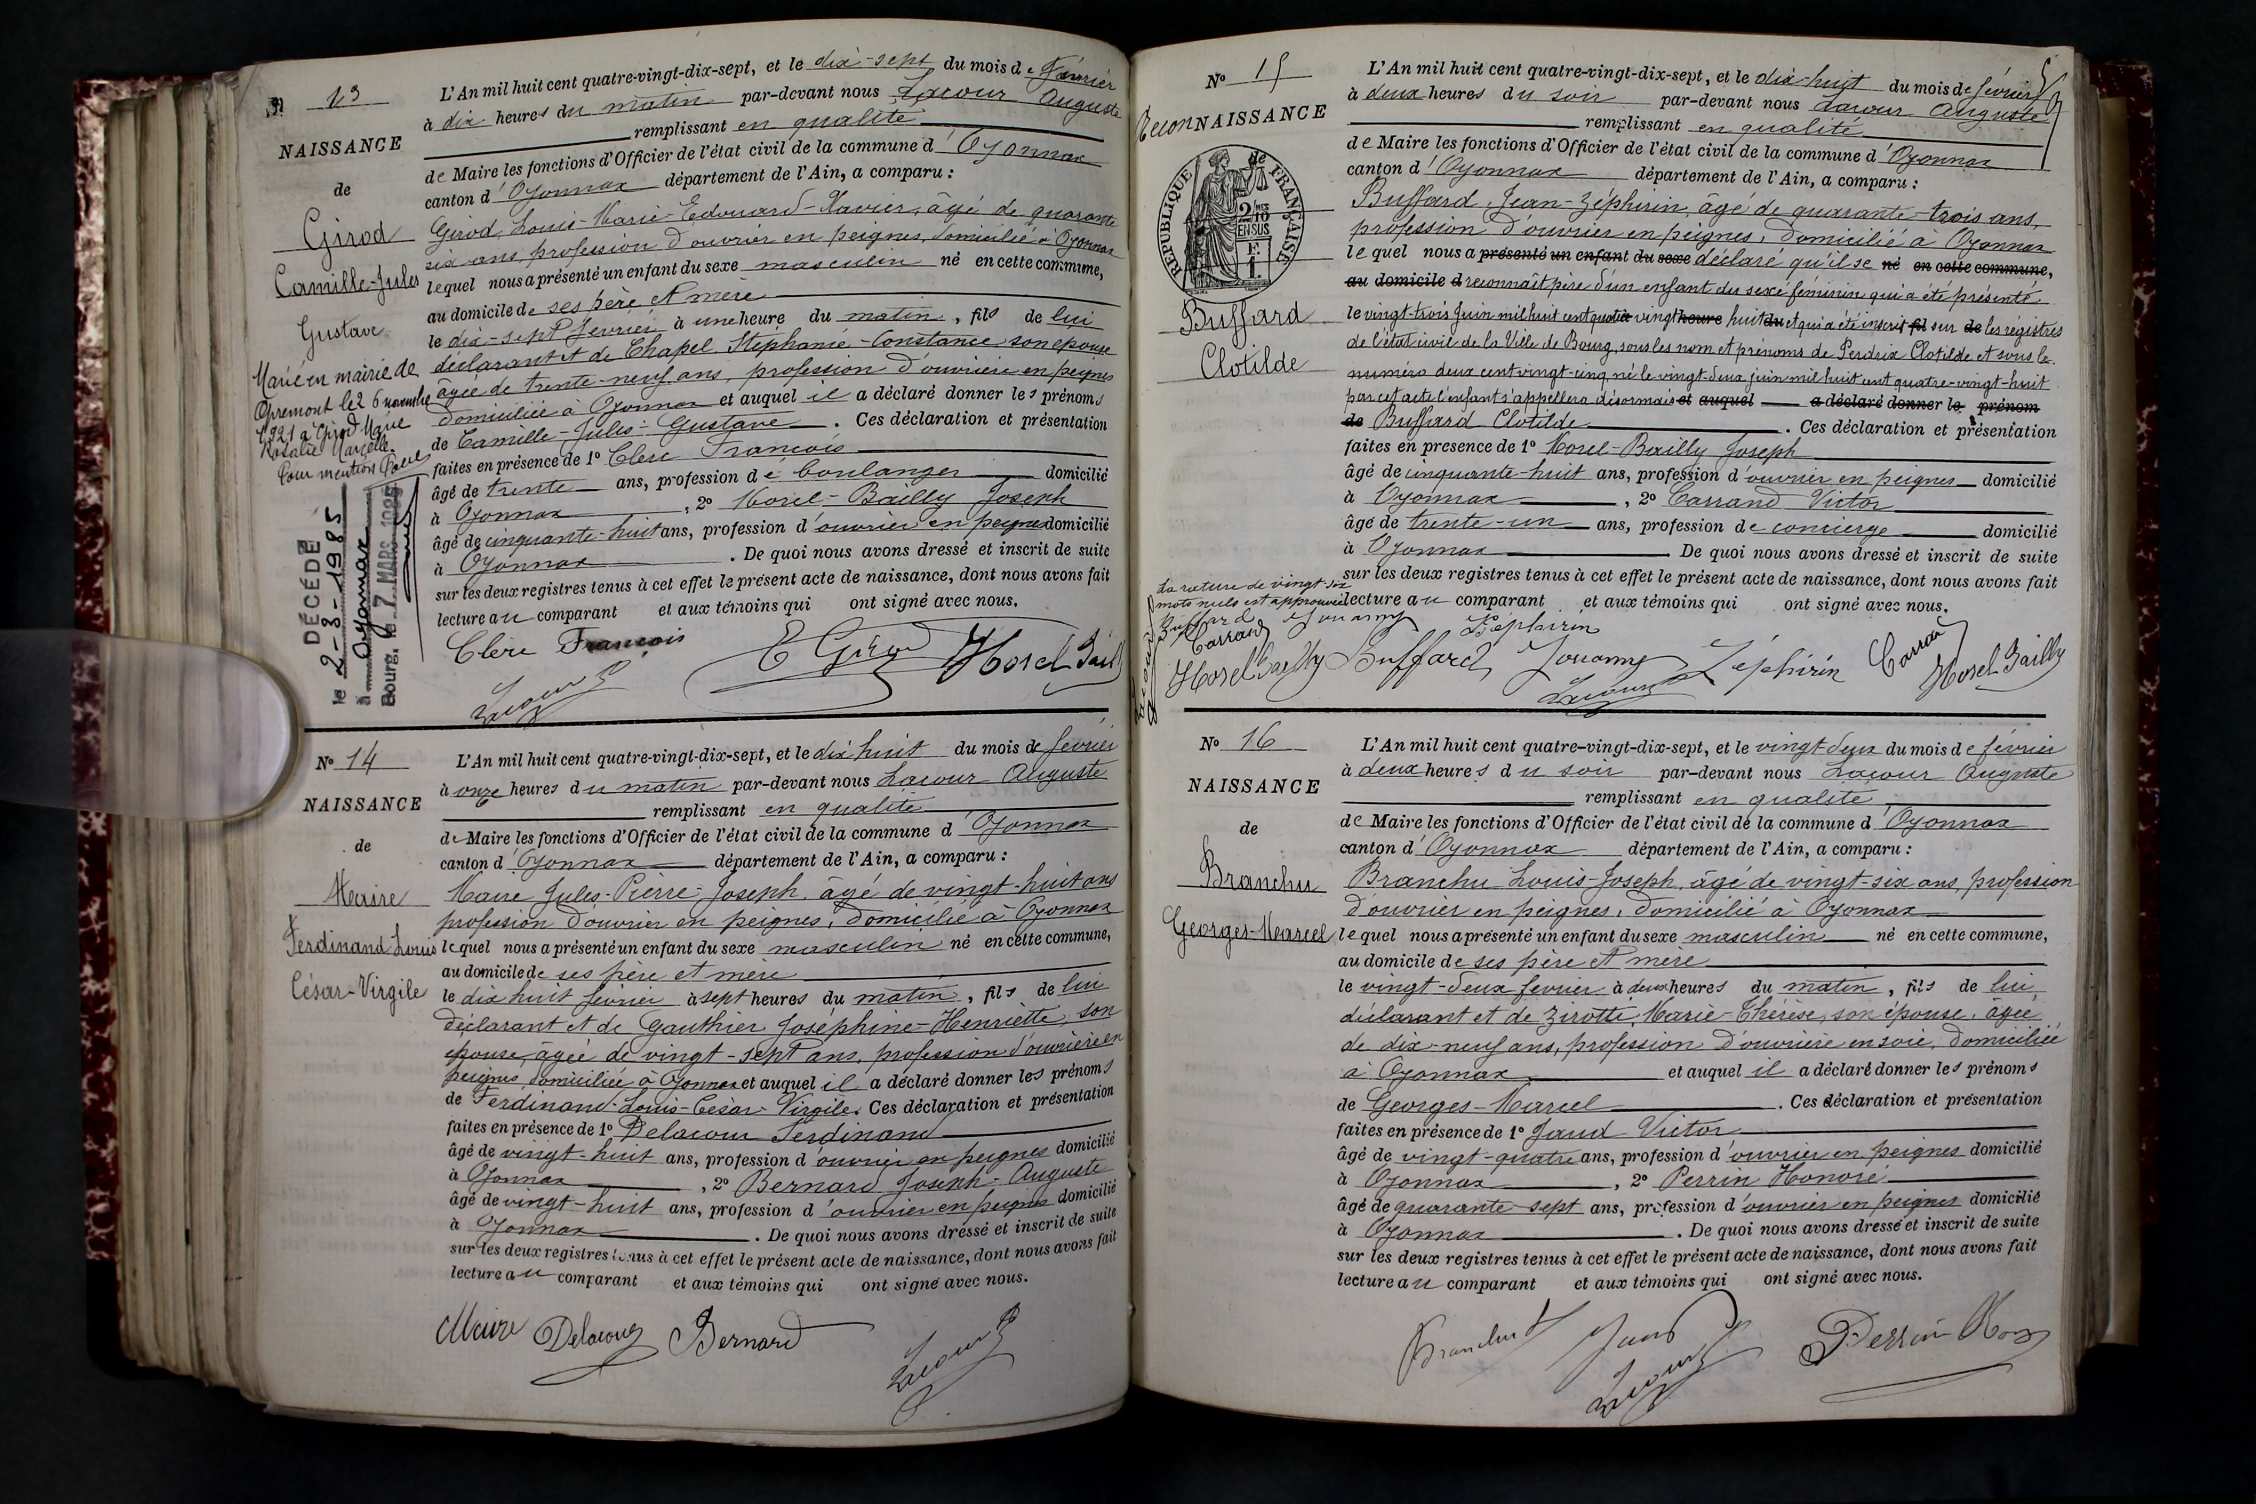 13
NAISSANCE
de
Girod
Camille-Jules
Gustave
Marié en mairie de
Apremont le 26 novembre
1921 à Girod Marie
Rosalie Marcelle.
Pour mention
DÉCÉDÉ
le 2-3-1985
à Oyonnax
Bourg, le 7 MARS 1985
L'An mil huit cent quatre-vingt-dix-sept, et le dix-sept du mois de février
à dix heures du matin par-devant nous Lacour Auguste
remplissant en qualité
de Maire les fonctions d'Officier de l'état civil de la commune d'Oyonnax
canton d'Oyonnax département de l'Ain, a comparu :
Girod, Louis-Marie-Edouard-Xavier, âgé de quarante
six ans, profession d'ouvrier en peignes, domicilié à Oyonnax
lequel nous a présenté un enfant du sexe masculin né en cette commune,
au domicile de ses père et mère
le dix-sept février à une heure du matin, fils de lui
déclarant et de Chapel Stéphanie-Constance son épouse
âgée de trente-neuf ans, profession d'ouvrière en peignes
domiciliée à Oyonnax et auquel il a déclaré donner les prénoms
de Camille-Jules-Gustave. Ces déclaration et présentation
faites en présence de 1° Clerc François
âgé de trente ans, profession de boulanger domicilié
à Oyonnax, 2° Morel-Bailly Joseph
âgé de cinquante-huit ans, profession d'ouvrier en peignes domicilié
à Oyonnax. De quoi nous avons dressé et inscrit de suite
sur les deux registres tenus à cet effet le présent acte de naissance, dont nous avons fait
lecture au comparant et aux témoins qui ont signé avec nous.
Clerc François E Girod Morel Bailly
Lacour
N° 14
NAISSANCE
de
Maire
Ferdinand Louis
César-Virgile
L'An mil huit cent quatre-vingt-dix-sept, et le dix huit du mois de février
à onze heures du matin par-devant nous Lacour Auguste
remplissant en qualité
de Maire les fonctions d'Officier de l'état civil de la commune d'Oyonnax
canton d'Oyonnax département de l'Ain, a comparu :
Maire Jules-Pierre-Joseph, âgé de vingt-huit ans
profession d'ouvrier en peignes, domicilié à Oyonnax
lequel nous a présenté un enfant du sexe masculin né en cette commune,
au domicile de ses père et mère
le dix huit février à sept heures du matin, fils de lui
déclarant et de Gauthier Joséphine-Henriette, son
épouse, âgée de vingt-sept ans, profession d'ouvrière en
peignes domiciliée à Oyonnax et auquel il a déclaré donner les prénoms
de Ferdinand-Louis-César-Virgile. Ces déclaration et présentation
faites en présence de 1° Delacour Ferdinand
âgé de vingt-huit ans, profession d'ouvrier en peignes domicilié
à Oyonnax, 2° Bernard Joseph-Auguste
âgé de vingt-huit ans, profession d'ouvrier en peignes domicilié
à Oyonnax. De quoi nous avons dressé et inscrit de suite
sur les deux registres tenus à cet effet le présent acte de naissance, dont nous avons fait
lecture au comparant et aux témoins qui ont signé avec nous.
Maire Delacour Bernard
Lacour
N° 15
ReconNAISSANCE
de
RÉPUBLIQUE FRANÇAISE
2/10 EN SUS
Buffard
Clotilde
L'An mil huit cent quatre-vingt-dix-sept, et le dix-huit du mois de février
à deux heures du soir par-devant nous Lacour Auguste
remplissant en qualité
de Maire les fonctions d'Officier de l'état civil de la commune d'Oyonnax
canton d'Oyonnax département de l'Ain, a comparu :
Buffard, Jean-Zéphirin, âgé de quarante-trois ans,
profession d'ouvrier en peignes, domicilié à Oyonnax
lequel nous a présenté un enfant du sexe déclaré qu'il se né en cette commune,
au domicile d reconnaît père d'un enfant du sexe féminin qui a été présenté
le vingt-trois Juin mil huit cent quatre vingt heure huit du et qui a été inscrit fil sur de les régistres
de l'état civil de la Ville de Bourg, sous les nom et prénoms de Perdrix Clotilde et sous le
numéro deux cent vingt-cinq, né le vingt-deux juin mil huit cent quatre-vingt-huit
par cet acte l'enfant s'appellera désormais et auquel a déclaré donner le prénom
de Buffard Clotilde. Ces déclaration et présentation
faites en présence de 1° Morel-Bailly Joseph
âgé de cinquante-huit ans, profession d'ouvrier en peignes domicilié
à Oyonnax, 2° Carrand Victor
âgé de trente-un ans, profession de concierge domicilié
à Oyonnax. De quoi nous avons dressé et inscrit de suite
sur les deux registres tenus à cet effet le présent acte de naissance, dont nous avons fait
lecture au comparant et aux témoins qui ont signé avec nous.
La rature de vingt-six
mots nuls est approuvée
Buffard Jouanny Zéphirin
Carrand
Morel Bailly Buffard Jouanny Zéphirin Carrand Morel Bailly
Lacour
N° 16
NAISSANCE
de
Branchu
Georges-Marcel
L'An mil huit cent quatre-vingt-dix-sept, et le vingt deux du mois de février
à deux heures du soir par-devant nous Lacour Auguste
remplissant en qualité
de Maire les fonctions d'Officier de l'état civil de la commune d'Oyonnax
canton d'Oyonnax département de l'Ain, a comparu :
Branchu Louis-Joseph, âgé de vingt-six ans, profession
d'ouvrier en peignes, domicilié à Oyonnax
lequel nous a présenté un enfant du sexe masculin né en cette commune,
au domicile de ses père et mère
le vingt-deux février à deux heures du matin, fils de lui
déclarant et de Zirotti, Marie-Thérèse, son épouse, âgée
de dix-neuf ans, profession d'ouvrière en soie, domiciliée
à Oyonnax et auquel il a déclaré donner les prénoms
de Georges-Marcel. Ces déclaration et présentation
faites en présence de 1° Jaud Victor
âgé de vingt-quatre ans, profession d'ouvrier en peignes domicilié
à Oyonnax, 2° Perrin Honoré
âgé de quarante-sept ans, profession d'ouvrier en peignes domicilié
à Oyonnax. De quoi nous avons dressé et inscrit de suite
sur les deux registres tenus à cet effet le présent acte de naissance, dont nous avons fait
lecture au comparant et aux témoins qui ont signé avec nous.
Branchu Jaud Perrin Hon
Lacour